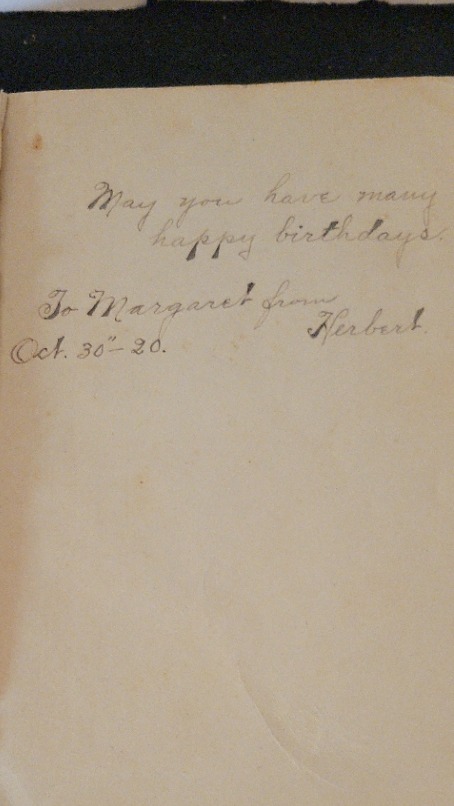 May you have many
happy birthdays.
To Margaret from
Herbert.
Oct. 30"-20.